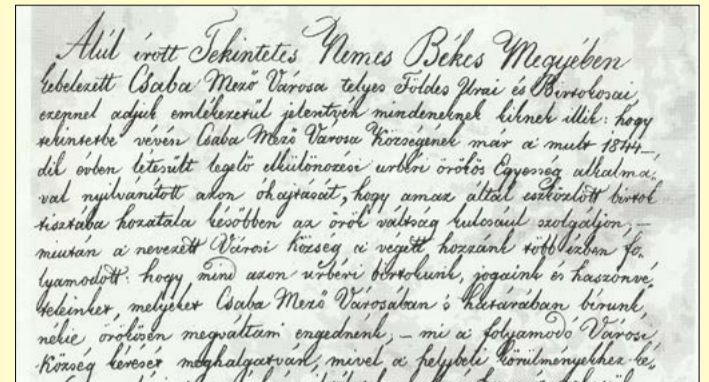 Alúl írott Tekintetes Nemes Békes Megyében
kebelezett Csaba Mező Városa telyes Földes Urai és Birtokosai,
ezennel adjuk emlékezetül jelentvén mindeneknek kiknek illik: hogy
tekintetbe vévén Csaba Mező Városa Községének már a' mult 1844–
dik évben létesült legelő elkülönözési urbéri örökös Egyesség alkalmá„
val nyilvánított azon óhajtását, hogy amaz által eszközlött birtok
tisztába hozatala későbben az örök váltság kulcsaul szolgáljon; –
miután a' nevezett Városi Község a' végett hozzánk több izben fo„
lyamodott: hogy mind azon urbéri birtokunk, jogaink és haszonvé„
teleinket, melyeket Csaba Mező Városában 's határában birunk,
nékie örökösen megváltani engednénk, – mi a' folyamodó Városi
Község kérését meghalgatván, mivel a' helybeli körülményekhez ké„